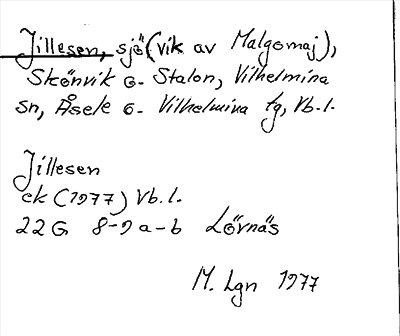 Jillesen, sjö (vik av Malgomaj),
Skönvik o. Stalon, Vilhelmina
sn, Åsele o. Vilhelmina tg, Vb.l.
Jillesen
ek (1977) Vb.l.
22 G 8-9 a-b Lövnäs
M. Lgn 1977